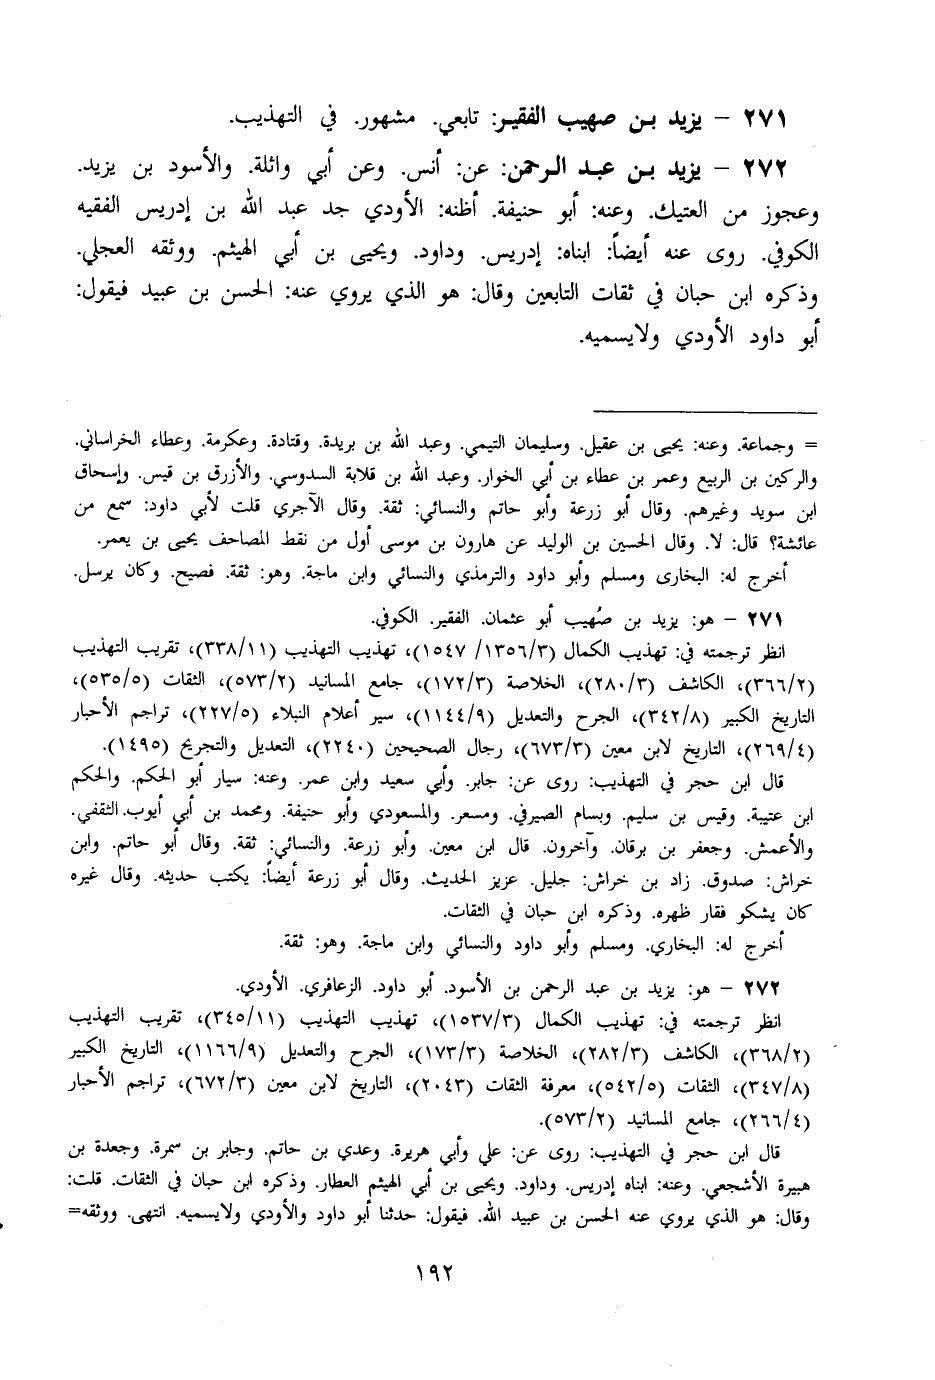 ٢٧١ – يزيد بـن صهيب الفقيـر: تابعي. مشهور. في التهذيب.
٢٧٢ – يزيد بـن عبـد الرحمن: عن: أنس. وعن أبي واثلة. والأسود بن يزيد.
وعجوز من العتيك. وعنه: أبو حنيفة. أظنه: الأودي جد عبد الله بن إدريس الفقيه
الكوفي. روى عنه أيضاً: ابناه: إدريس. وداود. ويحيى بن أبي الهيثم. ووثقه العجلي.
وذكره ابن حبان في ثقات التابعين وقال: هو الذي يروي عنه: الحسن بن عبيد فيقول:
أبو داود الأودي ولايسميه.
= وجماعة. وعنه: يحيى بن عقيل. وسليمان التيمي. وعبد الله بن بريدة. وقتادة. وعكرمة. وعطاء الخراساني.
والركين بن الربيع وعمر بن عطاء بن أبي الخوار. وعبد الله بن قلابة السدوسي. والأزرق بن قيس. وإسحاق
ابن سويد وغيرهم. وقال أبو زرعة وأبو حاتم والنسائي: ثقة. وقال الآجري قلت لأبي داود: سمع من
عائشة؟ قال: لا. وقال الحسين بن الوليد عن هارون بن موسى أول من نقط المصاحف يحيى بن يعمر.
أخرج له: البخارى ومسلم وأبو داود والترمذي والنسائي وابن ماجة. وهو: ثقة. فصيح. وكان يرسل.
٢٧١ – هو: يزيد بن صُهيب أبو عثمان. الفقير. الكوفي.
انظر ترجمته في: تهذيب الكمال (١٣٥٦/٣/ ١٥٤٧)، تهذيب التهذيب (٣٣٨/١١)، تقريب التهذيب
(٣٦٦/٢)، الكاشف (٢٨٠/٣)، الخلاصة (١٧٢/٣)، جامع المسانيد (٥٧٣/٢)، الثقات (٥٣٥/٥)،
التاريخ الكبير (٣٤٢/٨)، الجرح والتعديل (١١٤٤/٩)، سير أعلام النبلاء (٢٢٧/٥)، تراجم الأحبار
(٢٦٩/٤)، التاريخ لابن معين (٦٧٣/٣)، رجال الصحيحين (٢٢٤٠)، التعديل والتجريح (١٤٩٥).
قال ابن حجر في التهذيب: روى عن: جابر. وأبي سعيد وابن عمر. وعنه: سيار أبو الحكم. والحكم
ابن عتيبة. وقيس بن سليم. وبسام الصيرفي. ومسعر. والمسعودي وأبو حنيفة. ومحمد بن أبي أيوب.الثقفي.
والأعمش. وجعفر بن برقان. وآخرون. قال ابن معين. وأبو زرعة. والنسائي: ثقة. وقال أبو حاتم. وابن
خراش: صدوق. زاد بن خراش: جليل. عزيز الحديث. وقال أبو زرعة أيضاً: يكتب حديثه. وقال غيره
كان يشكو فقار ظهره. وذكره ابن حبان في الثقات.
أخرج له: البخاري. ومسلم وأبو داود والنسائي وابن ماجة. وهو: ثقة.
٢٧٢ – هو: يزيد بن عبد الرحمن بن الأسود. أبو داود. الزعافري. الأودي.
انظر ترجمته في: تهذيب الكمال (١٥٣٧/٣)، تهذيب التهذيب (٣٤٥/١١)، تقريب التهذيب
(٣٦٨/٢)، الكاشف (٢٨٢/٣)، الخلاصة (١٧٣/٣)، الجرح والتعديل (١١٦٦/٩)، التاريخ الكبير
(٣٤٧/٨)، الثقات (٥٤٢/٥)، معرفة الثقات (٢٠٤٣)، التاريخ لابن معين (٦٧٢/٣)، تراجم الأحبار
(٢٦٦/٤)، جامع المسانيد (٥٧٣/٢).
قال ابن حجر في التهذيب: روى عن: علي وأبي هريرة. وعدي بن حاتم. وجابر بن سمرة. وجعدة بن
هبيرة الأشجعي. وعنه: ابناه إدريس. وداود. ويحيى بن أبي الهيثم العطار. وذكره ابن حبان في الثقات. قلت:
وقال: هو الذي يروي عنه الحسن بن عبيد الله. فيقول: حدثنا أبو داود والأودي ولايسميه. انتهى. ووثقه=
١٩٢